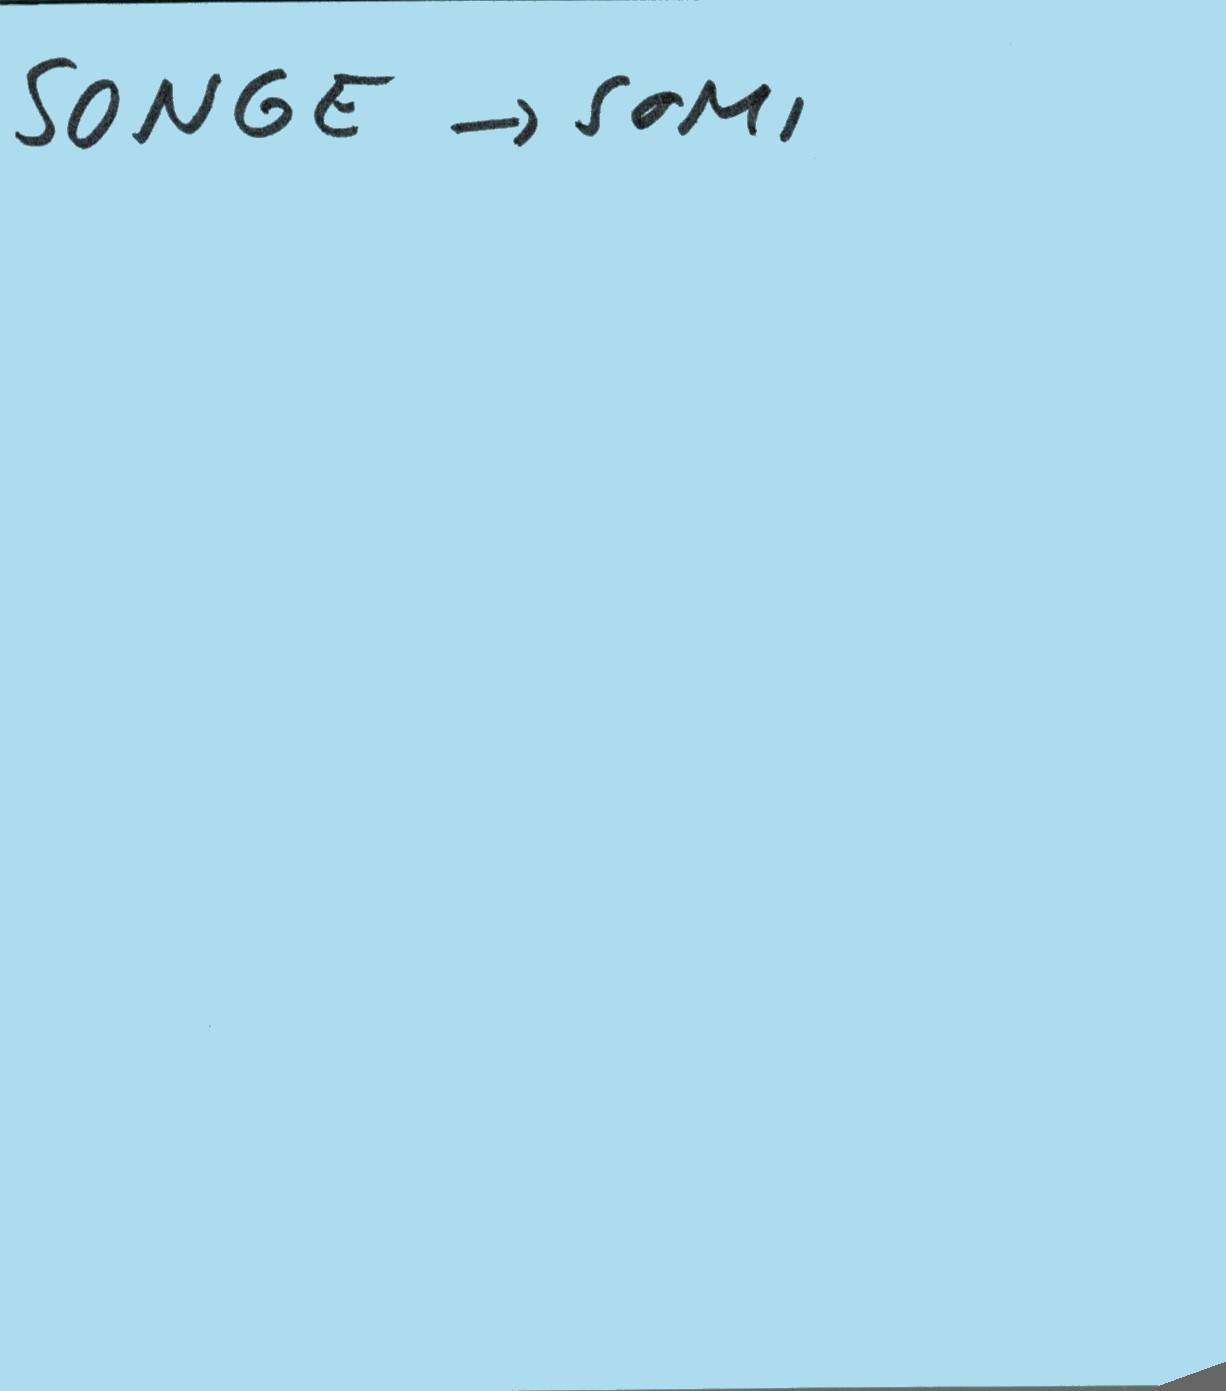 SONGE → SOMI